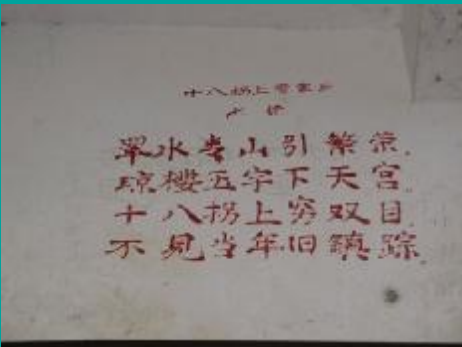 十八拐上家
翠水山引繁荣.
琼楼玉宇下天宫.
十八拐上穷双目.
不见当年旧镇踪.